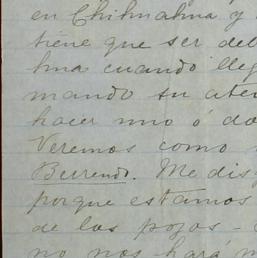 en Chihuahua y
tiene que ser del
hua cuando lleg
mando su aten
hacer uno ó do
Veremos como
Berrendo. Me disp
porque estamos
de los pozos -
no nos hará m